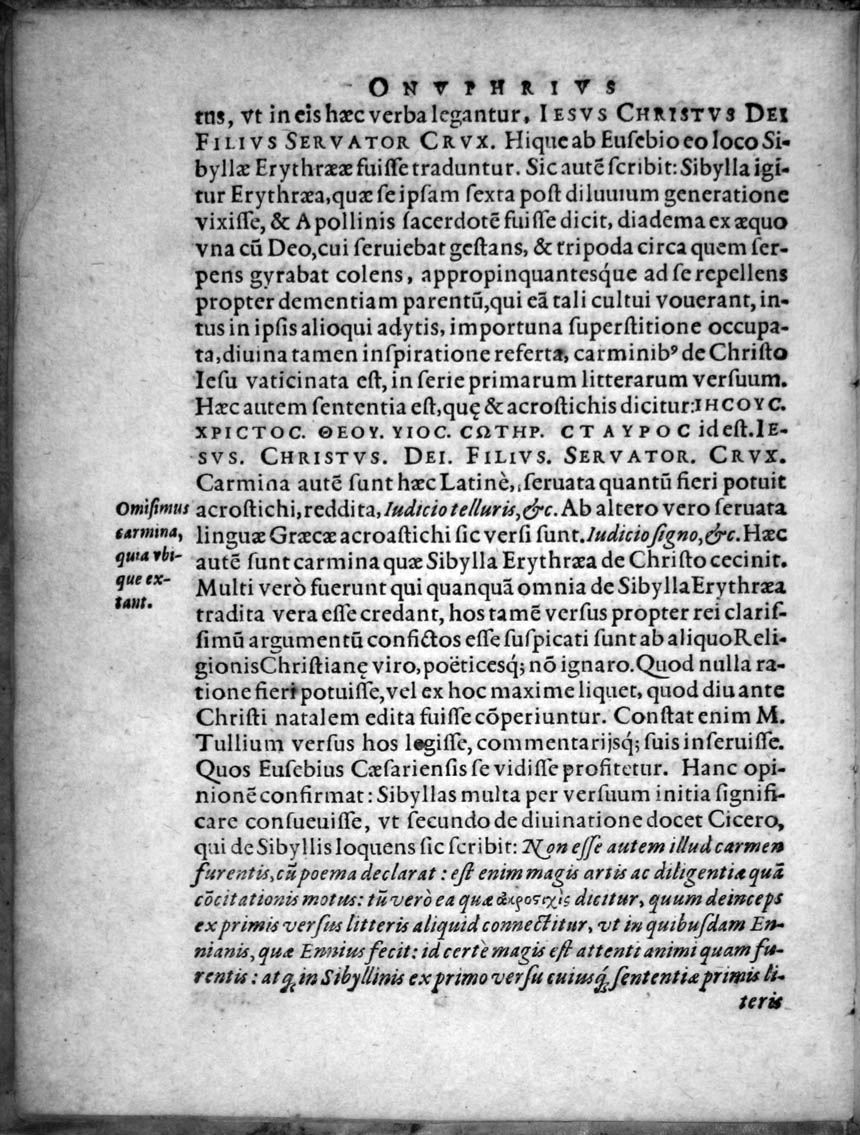 ONVPHRIVS
tus, vt in eis hæc verba legantur, IESVS CHRISTVS DEI
FILIVS SERVATOR CRVX. Hique ab Euſebio eo loco Si-
byllæ Erythrææ fuiſſe traduntur. Sic autē ſcribit: Sibylla igi-
tur Erythræa, quæ ſe ipſam ſexta poſt diluuium generatione
vixiſſe, & Apollinis ſacerdotē fuiſſe dicit, diadema ex æquo
vna cū Deo, cui ſeruiebat geſtans, & tripoda circa quem ſer-
pens gyrabat colens, appropinquantesq́ue ad ſe repellens
propter dementiam parentū, qui eā tali cultui vouerant, in-
tus in ipſis alioqui adytis, importuna ſuperſtitione occupa-
ta, diuina tamen inſpiratione referta, carminibꝰ de Chriſto
Ieſu vaticinata eſt, in ſerie primarum litterarum verſuum.
Hæc autem ſententia eſt, quę & acroſtichis dicitur: ΙΗϹΟΥϹ.
ΧΡΙϹΤΟϹ. ΘΕΟΥ. ΥΙΟϹ. ϹΩΤΗΡ. ϹΤΑΥΡΟϹ id eſt. IE-
SVS. CHRISTVS. DEI. FILIVS. SERVATOR. CRVX.
Carmina autē ſunt hæc Latinè, ſeruata quantū fieri potuit
acroſtichi, reddita, Iudicio telluris, &c. Ab altero vero ſeruata
linguæ Græcæ acroaſtichi ſic verſi ſunt. Iudicio ſigno, &c. Hæc
autē ſunt carmina quæ Sibylla Erythræa de Chriſto cecinit.
Multi verò fuerunt qui quanquā omnia de Sibylla Erythræa
tradita vera eſſe credant, hos tamē verſus propter rei clariſ-
ſimū argumentū confictos eſſe ſuſpicati ſunt ab aliquo Reli-
gionis Chriſtianę viro, poëticesq́; nō ignaro. Quod nulla ra-
tione fieri potuiſſe, vel ex hoc maxime liquet, quod diu ante
Chriſti natalem edita fuiſſe cōperiuntur. Conſtat enim M.
Tullium verſus hos legiſſe, commentarijsq́; ſuis inſeruiſſe.
Quos Euſebius Cæſarienſis ſe vidiſſe profitetur. Hanc opi-
nionē confirmat: Sibyllas multa per verſuum initia ſignifi-
care conſueuiſſe, vt ſecundo de diuinatione docet Cicero,
qui de Sibyllis loquens ſic ſcribit: Non eſſe autem illud carmen
furentis, cū poema declarat: eſt enim magis artis ac diligentiæ quā
cōcitationis motus: tū verò ea quæ ἀκροστιχὶς dicitur, quum deinceps
ex primis verſus litteris aliquid connectitur, vt in quibuſdam En-
nianis, quæ Ennius fecit: id certè magis eſt attenti animi quam fu-
rentis: atq́; in Sibyllinis ex primo verſu cuiusq́; ſententiæ primis li-
teris
Omiſimus
carmina,
quia vbi-
que ex-
tant.